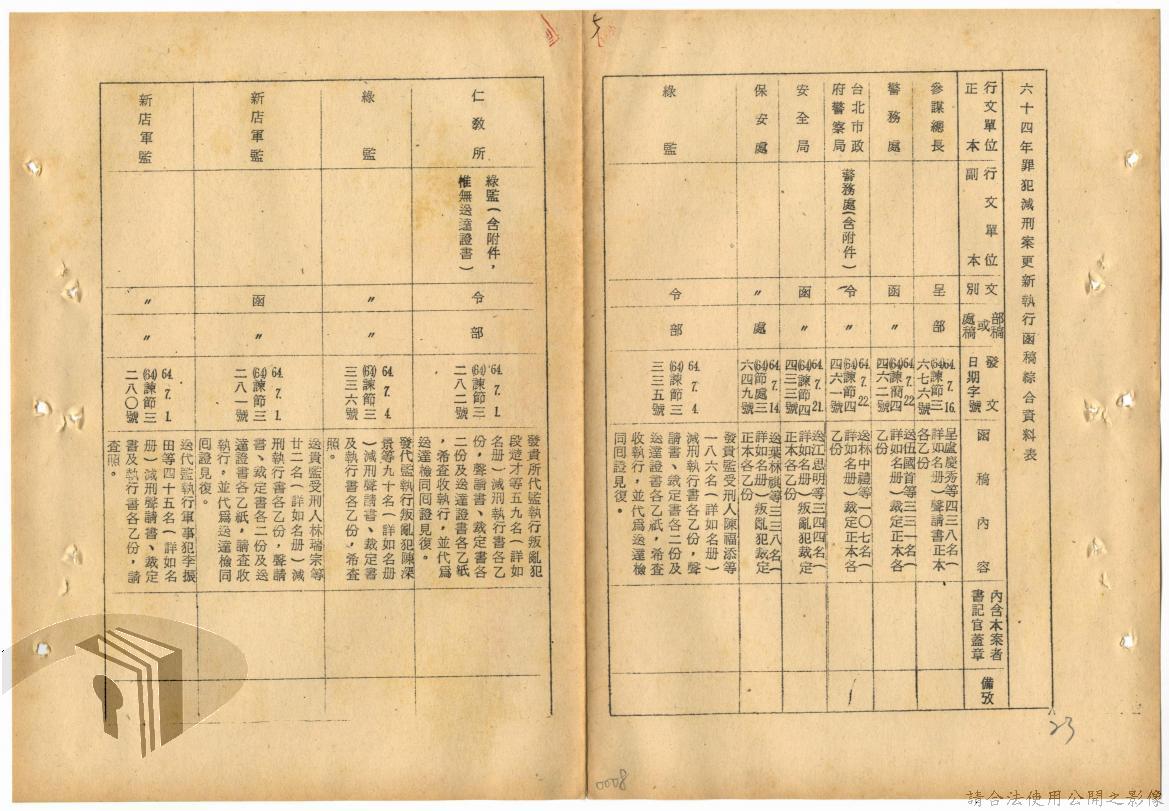 六十四年罪犯減刑案更新執行函稿綜合資料表
行文單位正本
行文單位副本
文別
部稿或處稿
發文日期字號
函稿內容
內含本案者書記官蓋章
備攷
參謀總長
呈
部
64.7.16.
(64)諫節三
六七六號
呈盧慶秀等四三八名(
詳如名册)聲請書正本
各乙份
警務處
函
〃
64.7.22.
(64)諫簡四
四六二號
送伍國首等三三一名(
詳如名册)裁定正本各
乙份
台北市政
府警察局
警務處(含附件)
令
〃
64.7.22.
(64)諫節四
四六一號
送林中禮等一〇七名(
詳如名册)裁定正本各
乙份
安全局
函
〃
64.7.21.
(64)諫節四
四三三號
送江思明等三四四名(
詳如名册)叛亂犯裁定
正本各乙份
保安處
〃
處
64.7.14.
(64)節處三
六四九號
送葉林祺等三三八名(
詳如名册)叛亂犯裁定
正本各乙份
綠監
令
部
64.7.4.
(64)諫節三
三三五號
發貴監受刑人陳福添等
一八六名(詳如名册)
減刑執行書各乙份,聲
請書、裁定書各二份及
送達證書各乙紙,希查
收執行,並代爲送達檢
同囘證見復。
仁敎所
綠監(含附件,
惟無送達證書)
令
部
64.7.1.
(64)諫節三
二八二號
發貴所代監執行叛亂犯
段楚才等五九名(詳如
名册)減刑執行書各乙
份,聲請書、裁定書各
二份及送達證書各乙紙
,希查收執行,並代爲
送達檢同囘證見復。
綠監
〃
〃
64.7.4.
(64)諫節三
三三六號
發代監執行叛亂犯陳深
景等九十名(詳如名册
)減刑聲請書、裁定書
及執行書各乙份,希查
照。
新店軍監
函
〃
64.7.1.
(64)諫節三
二八一號
送貴監受刑人林瑞宗等
廿二名(詳如名册)減
刑執行書各乙份,聲請
書、裁定書各二份及送
達證書各乙紙,請查收
執行,並代爲送達檢同
囘證見復。
新店軍監
〃
〃
64.7.1.
(64)諫節三
二八〇號
送代監執行軍事犯李振
田等四十五名(詳如名
册)減刑聲請書、裁定
書及執行書各乙份,請
查照。
5
23
0008
請合法使用公開之影像